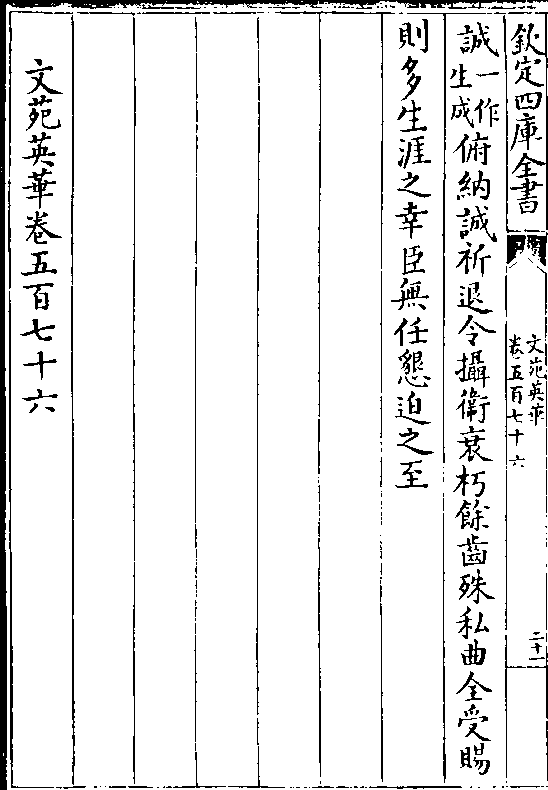 欽定四庫全書
文苑英華
卷五百七十六
二十一
誠一作生成俯納誠祈退令攝衛衰朽餘齒殊私曲全受賜
則多生涯之幸臣無任懇迫之至
文苑英華卷五百七十六